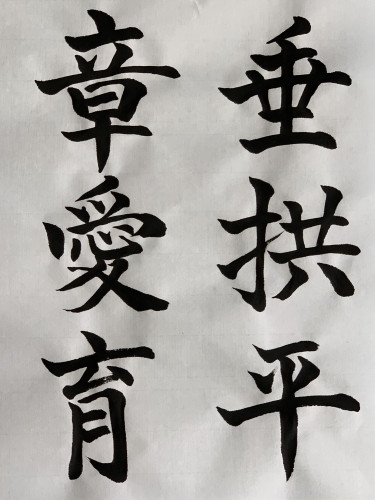 垂拱平
章愛育